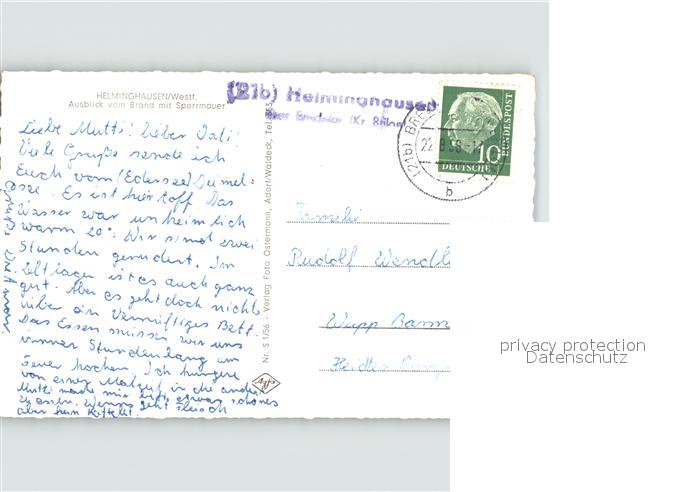 HELMINGHAUSEN/Westf.
Ausblick vom Brand mit Sperrmauer
(21b) Helminghausen
über Bredelar (Kr. Brilon)
(21b) BRE
22.8.56
b
10
DEUTSCHE
BUNDESPOST
Liebe Mutti! lieber Vati!
Viele Grüße sende ich
Euch vom (Edersee) Diemel=
see. Es ist hier toff. Das
Wasser war unheimlich
warm 20°. Wir sind zwei
Stunden gerudert. Im
Zeltlager ist es auch ganz
gut. Aber es geht doch nichts
über ein Vernünftiges Bett.
Das Essen müssen wir uns
immer Stundenlang am
Feuer kochen. Ich hungere
von einer Malzeit in die andere
Mutti mache mir bitte etwas schönes
zu essen. Wenns geht Fleisch
aber kein
Nr. S 1/56 - Verlag Foto Ostermann, Adorf/Waldeck, Tel.
Agfa
Familie
Rudolf Wendl
Wupp Barm
Heidter
privacy protection
Datenschutz